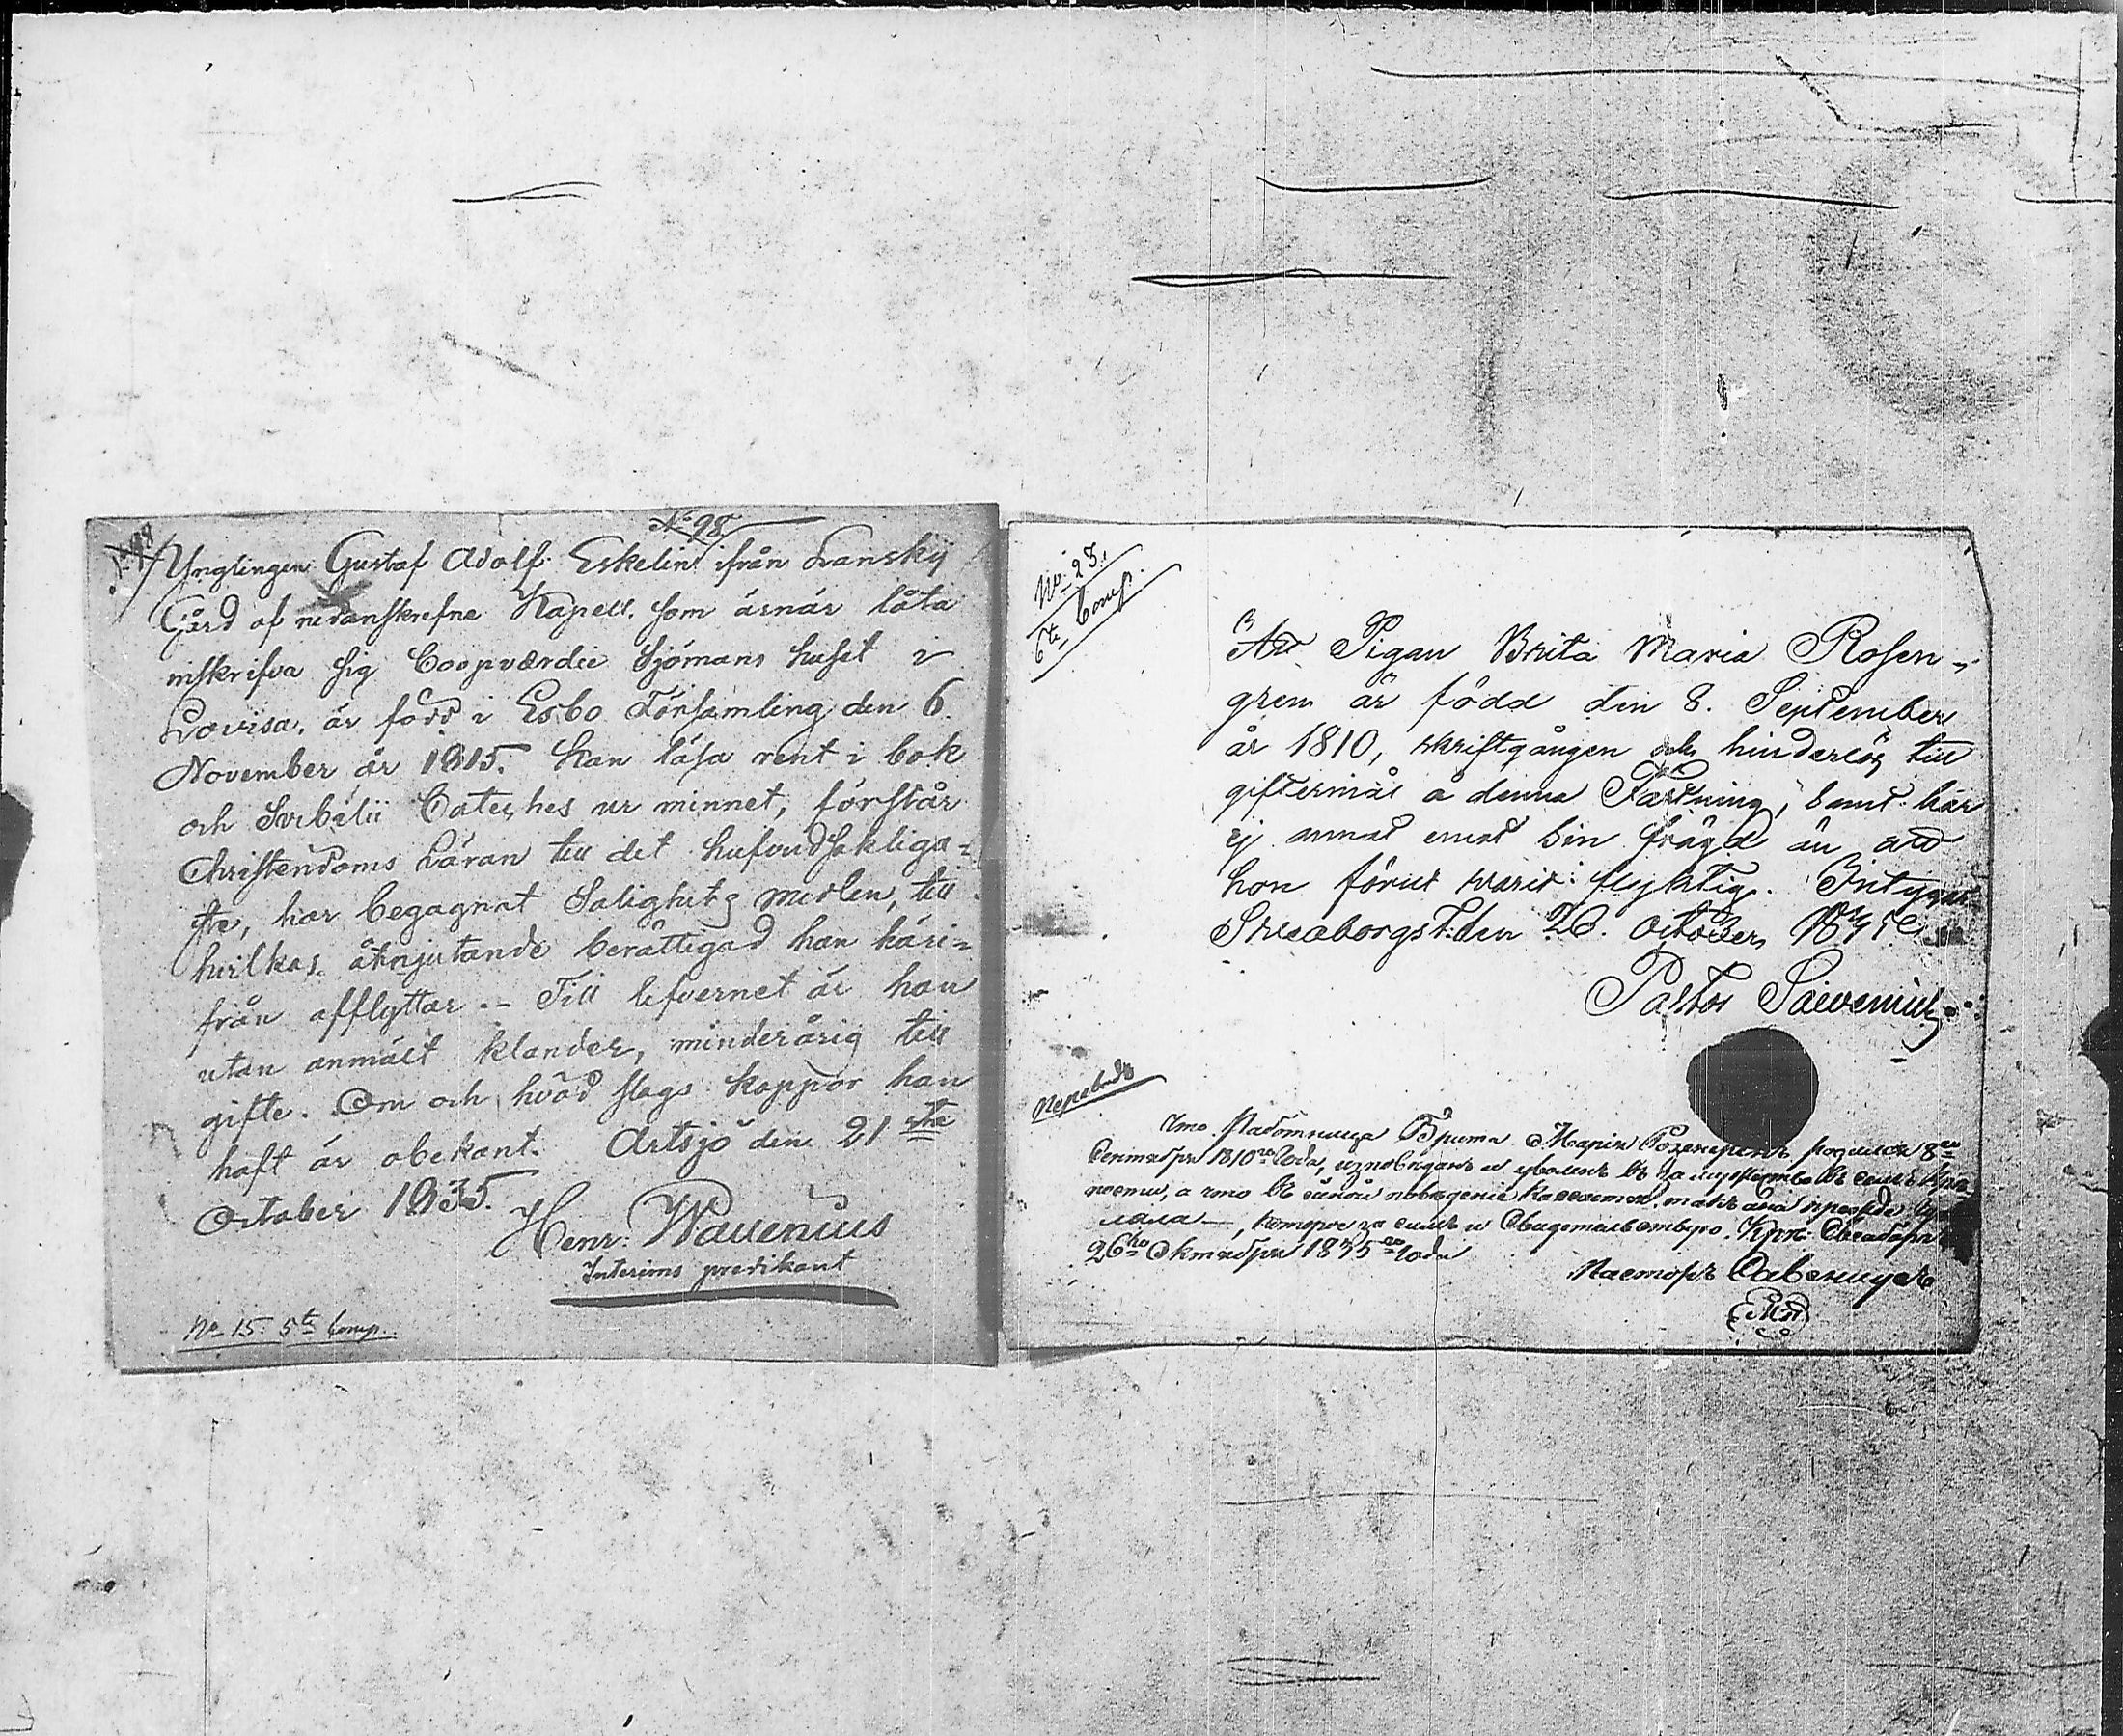 No 98
Ynglingen Gustaf Adolf Eskelin ifrån Lanskij
Gård af nedanskrefne Kapell. som ärnar låta
inskrifva sig Coopværdie Sjömans huset i
Lovisa. är född i Esbo Församling den 6.
November år 1815. kan läsa rent i bok
och Svebilii Cateches ur minnet, förstår
Christendoms Läran till det hufvudsakliga=
ste, har begagnat Salighetz medlen, till
hvilkas åtnjutande berättigad han häri=
från afflyttar. – Till lefvernet är han
utan anmält klander, minderårig till
gifte. Om och hvad slags koppor han
haft är obekant. Artsjö den 21 ste
October 1835.
Henr: Wavenius
Interims predikant
No 15. 5te Comp.
No 23.
6te Comp.
Att Pigan Brita Maria Rosen=
gren är född den 8. September
år 1810, skriftgången och hinderlös till
giftermål å denna Fästning, samt har
ej annat emot sin frägd än att
hon förut varit flyktig. Intygar
Sveaborgs F. den 26. October 1835
Pastor Saivenius
Переводъ
Что Работница Брита Марія Розенгренъ родилась 8го
Сентября 1810го Года,
26го Октября 1835го Года
Пасторъ Савениусъ